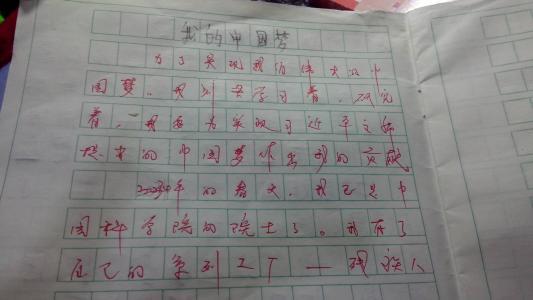 我的中国梦
为了实现我们伟大的中
国梦，我刻苦学习着，研究
着，我要为实现习近平主席
提出的中国梦作出我的贡献。
年的春天，我已是中
国科学院的院士了。我有了
自己的系列工厂——残疾人